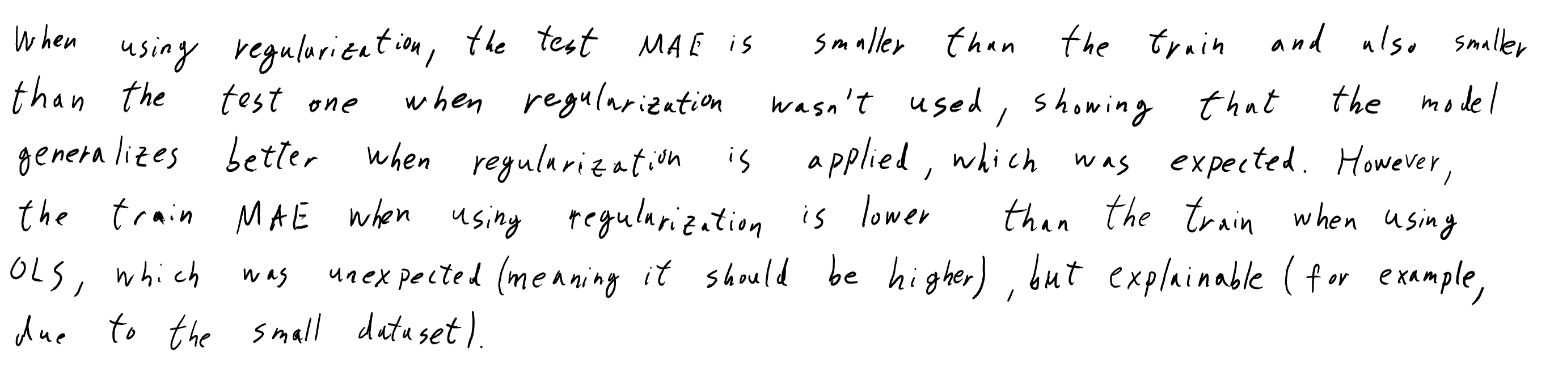 When using regularization, the test MAE is smaller than the train and also smaller
than the test one when regularization wasn't used, showing that the model
generalizes better when regularization is applied, which was expected. However,
the train MAE when using regularization is lower than the train when using
OLS, which was unexpected (meaning it should be higher), but explainable (for example,
due to the small dataset).